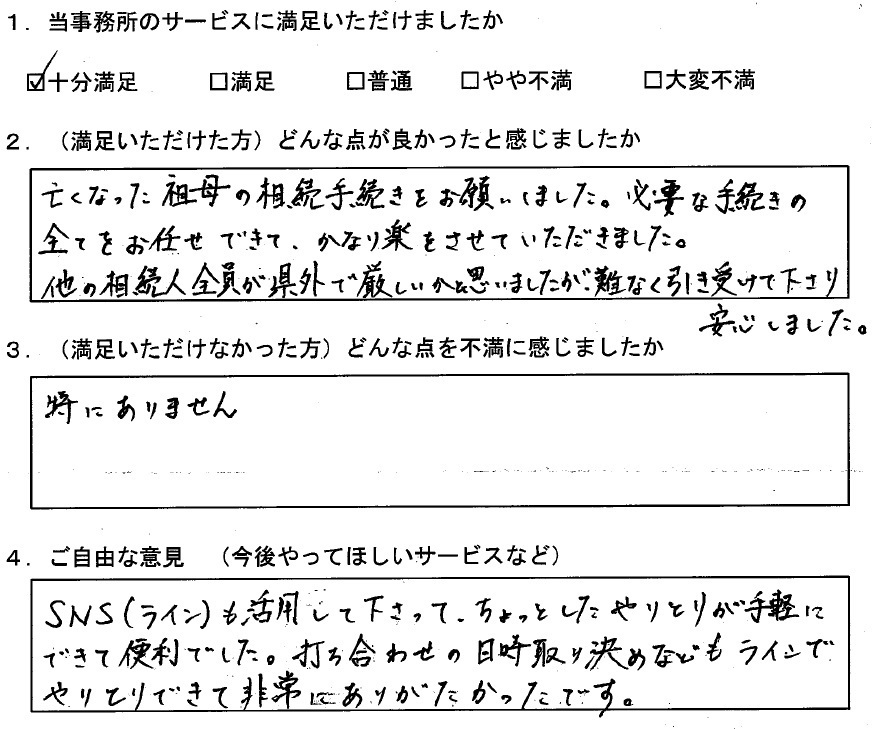 1．当事務所のサービスに満足いただけましたか
☑十分満足 □満足 □普通 □やや不満 □大変不満
2．（満足いただけた方）どんな点が良かったと感じましたか
亡くなった祖母の相続手続きをお願いしました。必要な手続きの
全てをお任せできて、かなり楽をさせていただきました。
他の相続人全員が県外で厳しいかと思いましたが、難なく引き受けて下さり
安心しました。
3．（満足いただけなかった方）どんな点を不満に感じましたか
特にありません
4．ご自由な意見　（今後やってほしいサービスなど）
SNS(ライン)も活用して下さって、ちょっとしたやりとりが手軽に
できて便利でした。打ち合わせの日時取り決めなどもラインで
やりとりできて非常にありがたかったです。